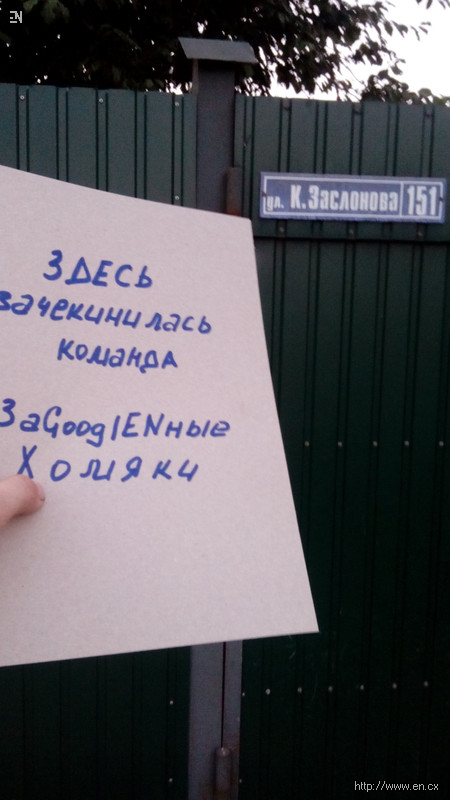 EN
ул. К.Заслонова 151
ЗДЕСЬ
зачекинилась
команда
ЗаGooglENные
Хомяки
http://www.en.cx